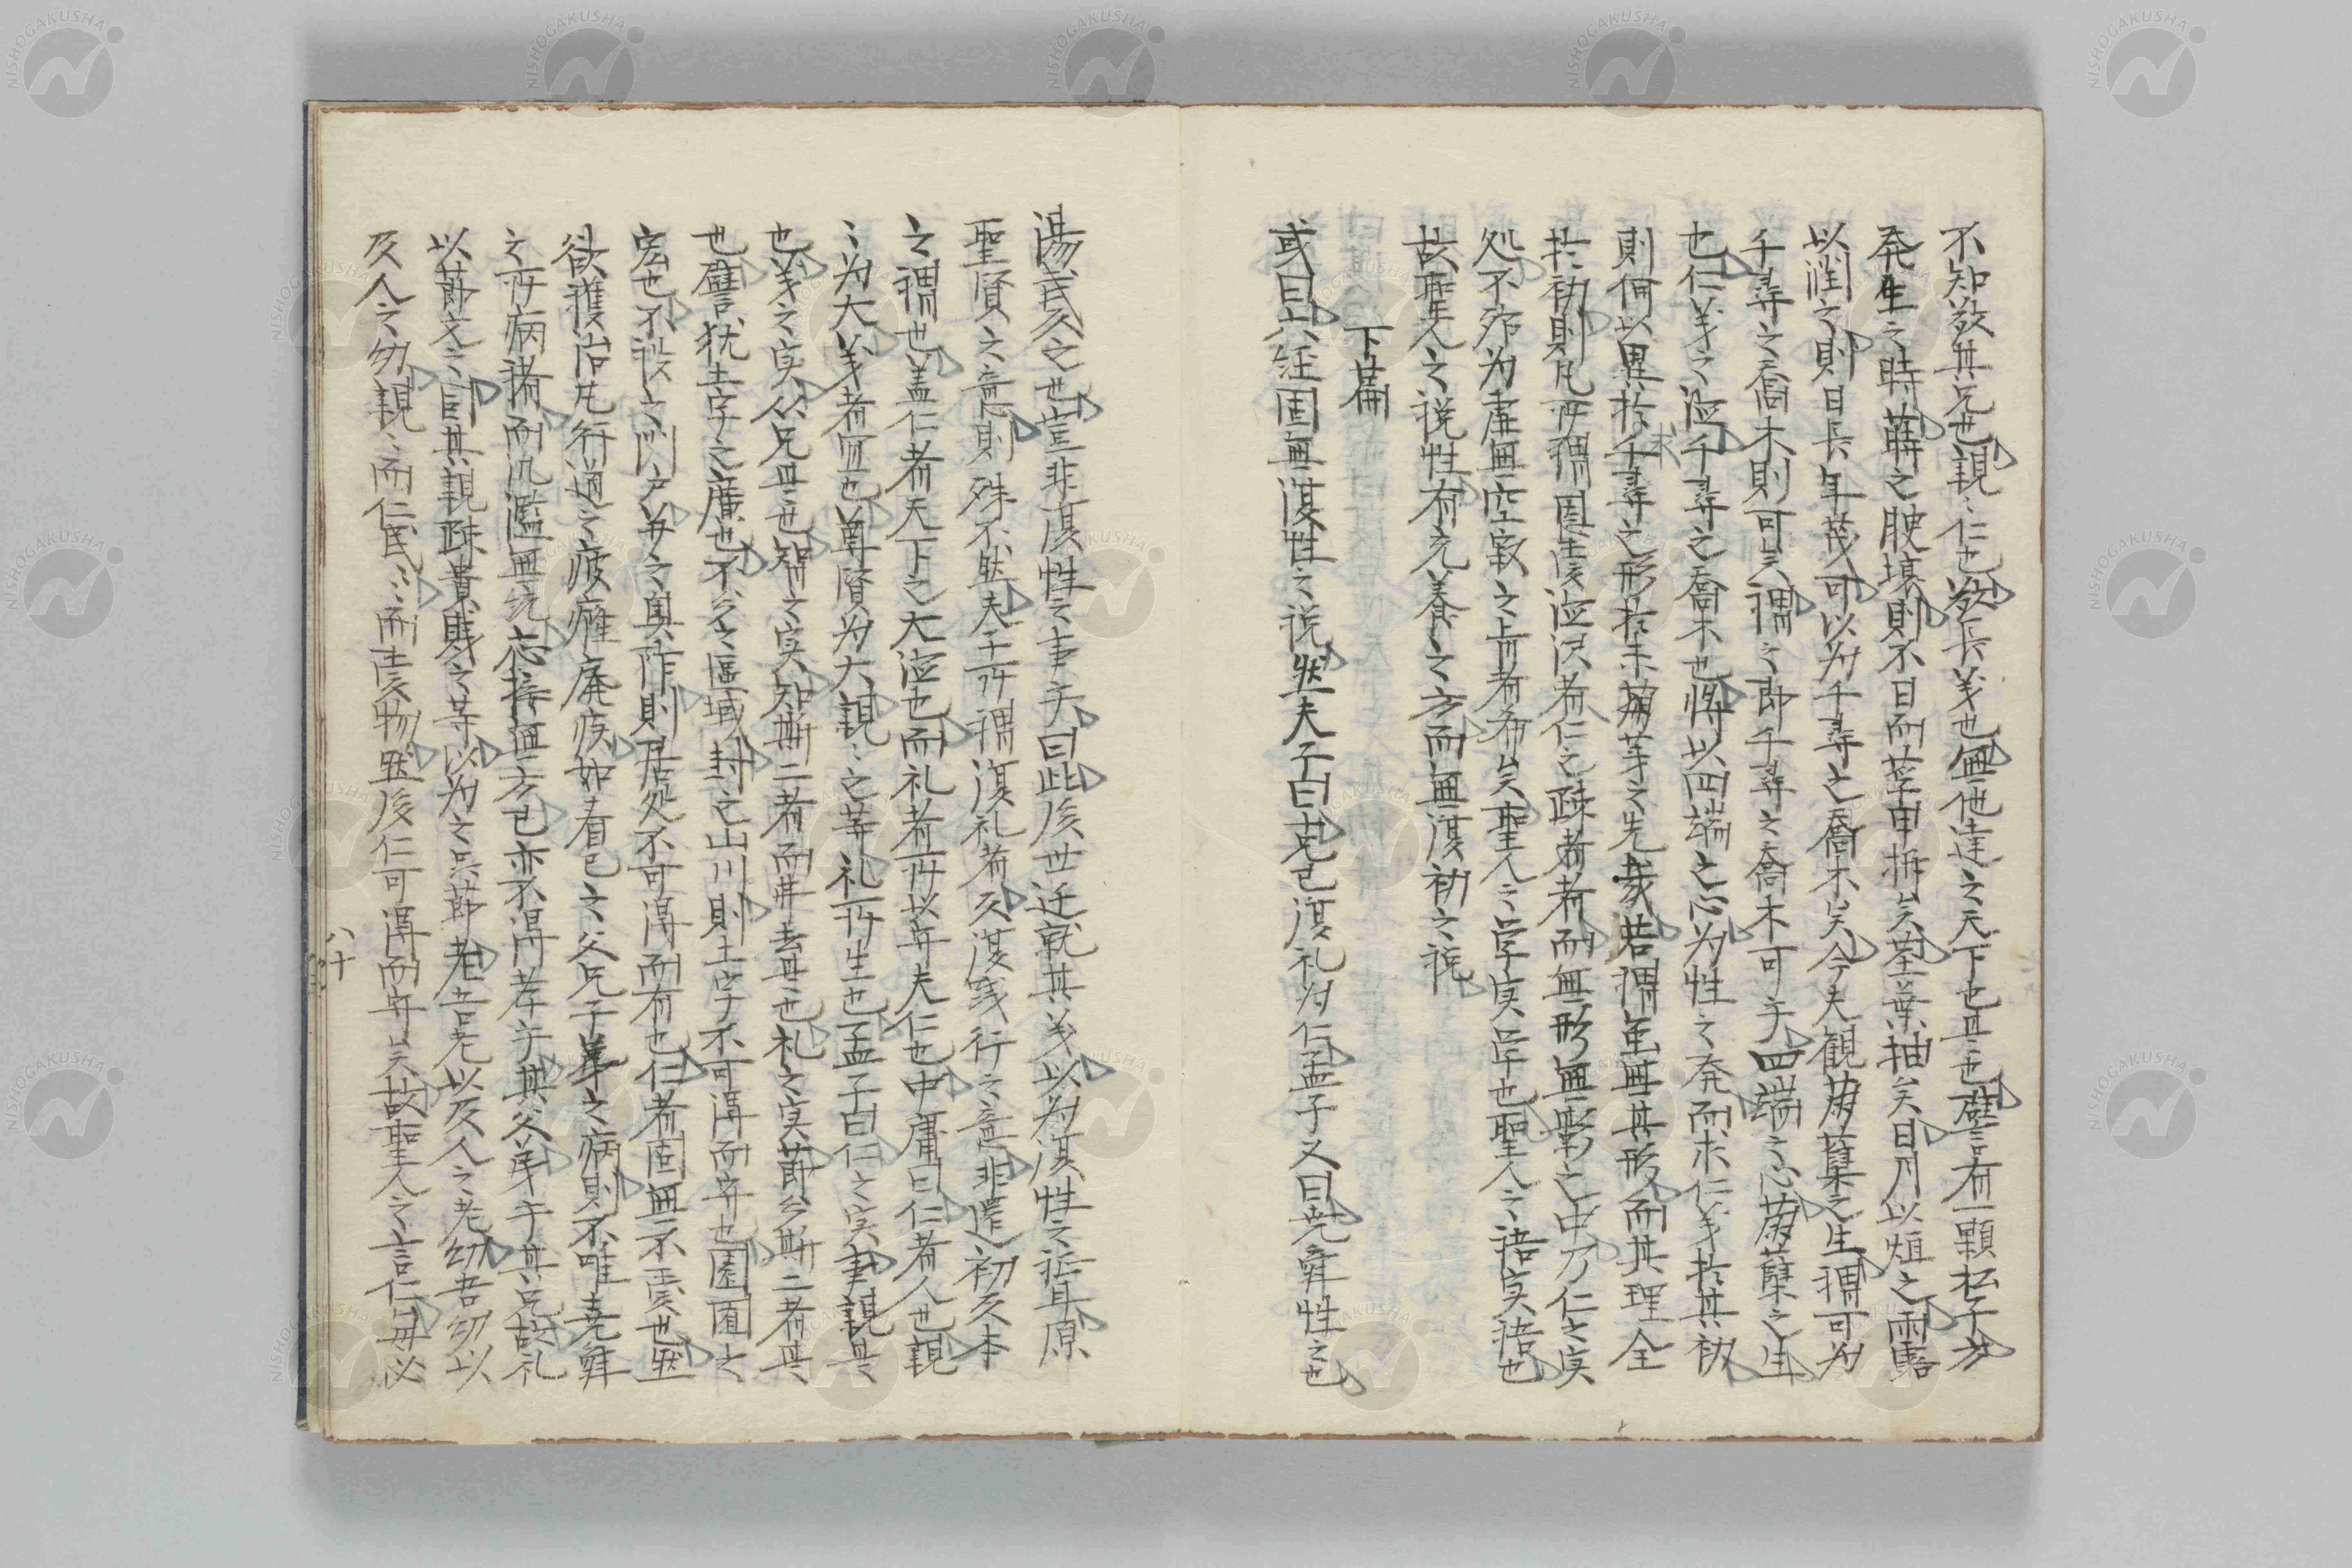 不知敬其兄也親〻仁也敬長義也無他達之天下也其言也譬言有一顆松子方
発生之時藉之腴壌則不日而莩甲拆矣茎葉抽矣日月以烜之雨露
以潤之則日長年茂可以為千尋之喬木矣今夫観萌蘗之生謂可為
千尋之喬木則可矣謂之即千尋之喬木可乎四端之心萌蘗之生
也仁義之徳千尋之喬木也将以四端之心為性之発而求仁義於其初
則何以異於求千尋之形於未萌芽之先哉若謂雖無其形而其理全
於初則凡所謂恩愛徳沢者仁之疎者而無形無影之中乃仁之実
処不殆為虚無空寂之帰者希矣聖人之学実学也聖人之語実語也
故聖人之説性有充養之方而無復初之説
下篇
或曰六経固無復性之説然夫子曰克己復礼為仁孟子又曰堯舜性之也
湯武反之也豈非復性之事乎曰此後世迁就其義以為復性之証耳原
聖賢之意則殊不然夫子所謂復礼者反復践行之意非還初反本
之謂也蓋仁者天下之大徳也而礼者所以弁夫仁也中庸曰仁者人也親
〻為大義者宜也尊賢為大親〻之等礼所生也孟子曰仁之実事親是
也義之実从兄是也智之実知斯二者而弗去是也礼之実節文斯二者是
也譬犹土宇之広也不分之区域封之山川則土宇不可得而弁也園囿之
宏也不設之門戸弁之奥阼則居処不可得而有也仁者固無不愛也然
欲獲治凡行道之疲癃廃疾如看己之父兄子弟之病則不唯堯舜
之所病諸而汎濫無統応接無方己亦不得孝乎其父弟乎其兄故礼
以節文之自其親疎貴賤之等以為之品節老吾老以及人之老幼吾幼以
及人之幼親〻而仁民〻〻而愛物然後仁可得而弁矣故聖人之言仁毎必
八十